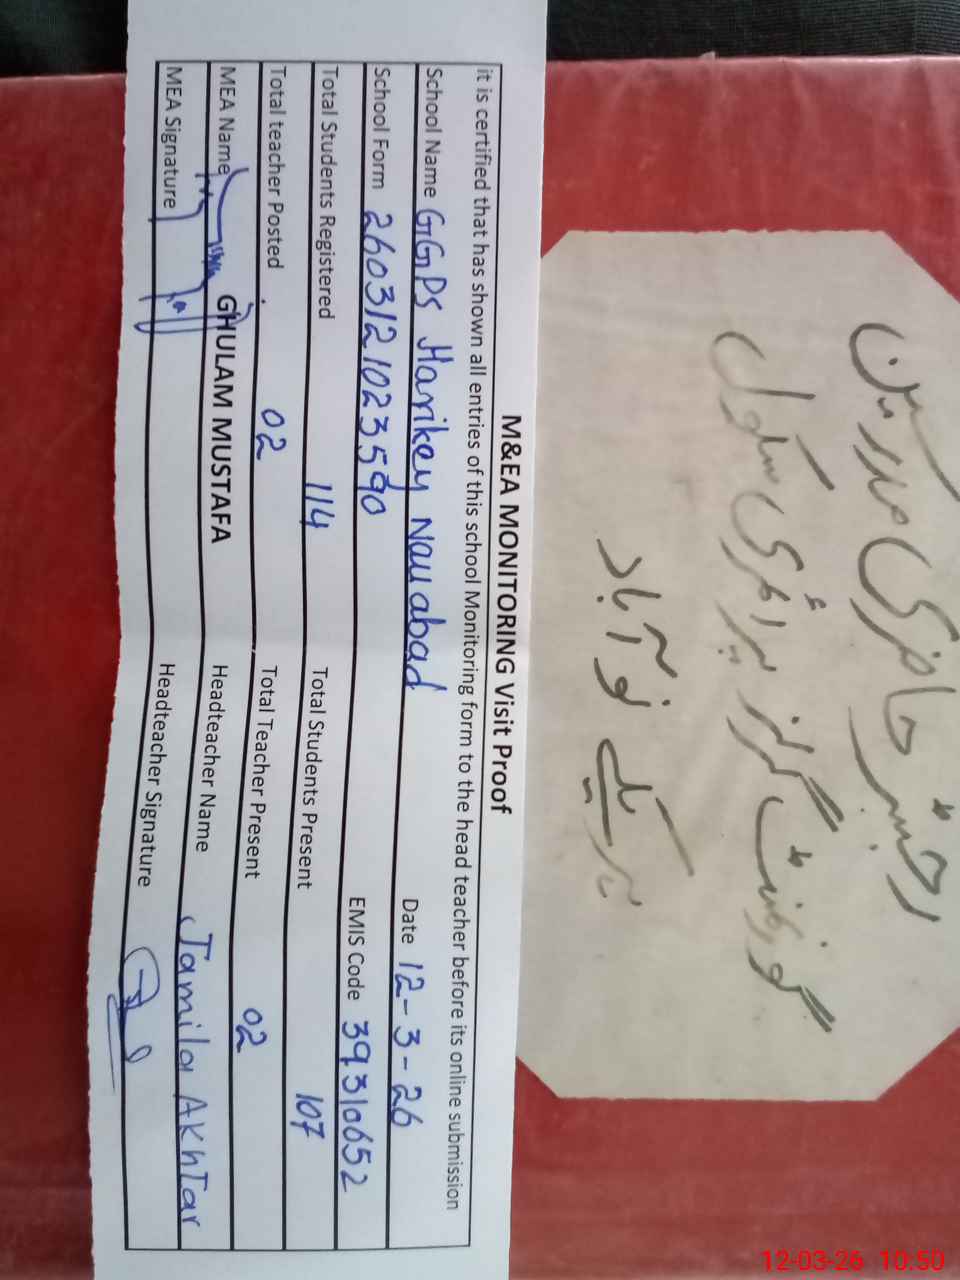 رجسٹر حاضری مدرسین
گورنمنٹ گرلز پرائمری سکول
ہریکے نو آباد
M&EA MONITORING Visit Proof
it is certified that has shown all entries of this school Monitoring form to the head teacher before its online submission
School Name GGPS Harikey Nauabad Date 12-3-26
School Form 2603121023590 EMIS Code 39310652
Total Students Registered 114 Total Students Present 107
Total teacher Posted 02 Total Teacher Present 02
MEA Name GHULAM MUSTAFA Headteacher Name Jamila Akhtar
MEA Signature Headteacher Signature
12-03-26 10:50